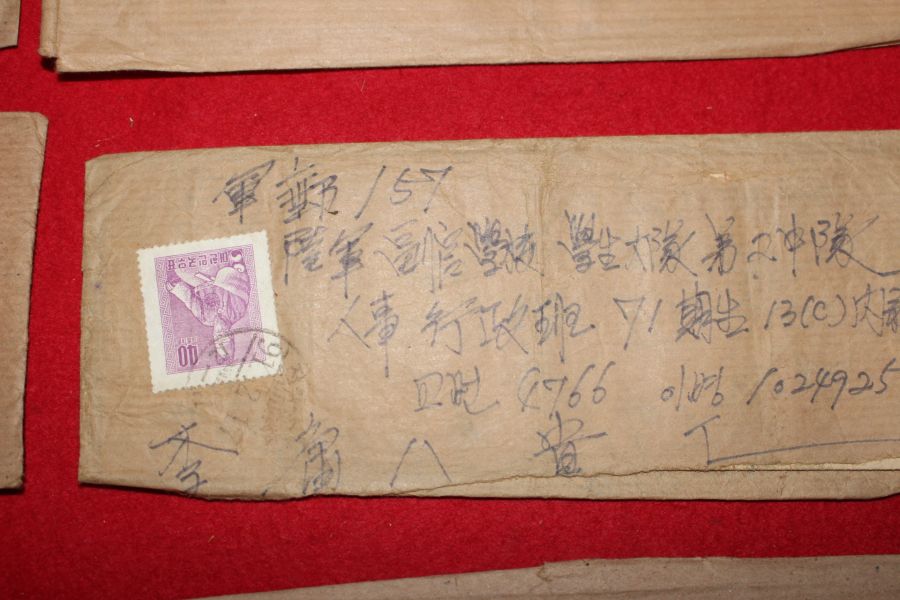 軍郵 157
陸軍 通信學校 學生大隊 第2中隊
人事行政班 71期生 13(C)內
교번 4766 이병 1024925
李 甯 八 貴下
대한민국우표
40